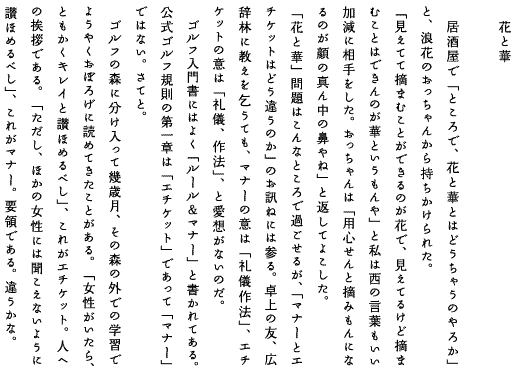 花と華
居酒屋で「ところで、花と華とはどうちゃうのやろか」
と、浪花のおっちゃんから持ちかけられた。
「見えてて摘まむことができるのが花で、見えてるけど摘ま
むことはできんのが華というもんや」と私は西の言葉もいい
加減に相手をした。おっちゃんは「用心せんと摘みもんにな
るのが顔の真ん中の鼻やね」と返してよこした。
「花と華」問題はこんなところで過ごせるが、「マナーとエ
チケットはどう違うのか」のお訊ねには参る。卓上の友、広
辞林に教えを乞うても、マナーの意は「礼儀作法」、エチ
ケットの意は「礼儀、作法」、と愛想がないのだ。
ゴルフ入門書にはよく「ルール＆マナー」と書かれてある。
公式ゴルフ規則の第一章は「エチケット」であって「マナー」
ではない。さてと。
ゴルフの森に分け入って幾歳月、その森の外での学習で
ようやくおぼろげに読めてきたことがある。「女性がいたら、
ともかくキレイと讃ほめるべし」、これがエチケット。人へ
の挨拶である。「ただし、ほかの女性には聞こえないように
讃ほめるべし」、これがマナー。要領である。違うかな。